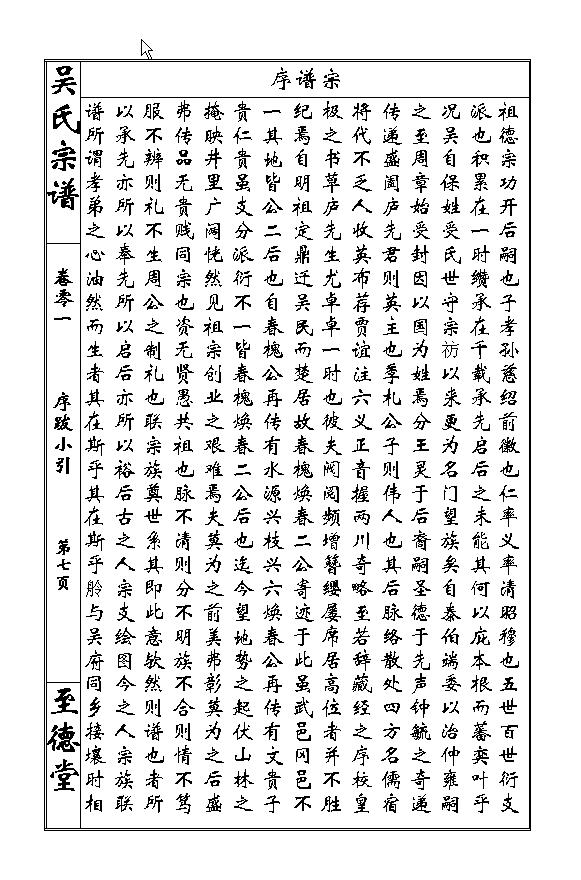 宗谱序
祖德宗功开后嗣也子孝孙慈绍前徽也仁率义率清昭穆也五世百世衍支
派也积累在一时缵承在千载承先启后之未能其何以庇本根而蕃奕叶乎
况吴自保姓受氏世守宗祊以来更为名门望族矣自泰伯端委以治仲雍嗣
之至周章始受封因以国为姓焉分王灵于后裔嗣圣德于先声钟毓之奇递
传递盛阖庐先君则英主也季札公子则伟人也其后脉络散处四方名儒宿
将代不乏人收英布荐贾谊注六义正音握两川奇略至若辞藏经之序校皇
极之书草庐先生尤卓卓一时也彼夫阀阅频增簪缨屡席居高位者并不胜
纪焉自明祖定鼎迁吴民而楚居故春槐焕春二公寄迹于此虽武邑冈邑不
一其地皆公二后也自春槐公再传有水源兴枝兴六焕春公再传有文贵子
贵仁贵虽支分派衍不一皆春槐焕春二公后也迄今望地势之起伏山林之
掩映井里广阔恍然见祖宗创业之艰难焉夫莫为之前美弗彰莫为之后盛
弗传品无贵贱同宗也资无贤愚共祖也脉不清则分不明族不合则情不笃
服不辨则礼不生周公之制礼也联宗族奠世系其即此意欤然则谱也者所
以承先亦所以奉先所以启后亦所以裕后古之人宗支绘图今之人宗族联
谱所谓孝弟之心油然而生者其在斯乎其在斯乎舲与吴府同乡接壤时相
吴氏宗谱
卷零一
序跋小引
第七页
至德堂